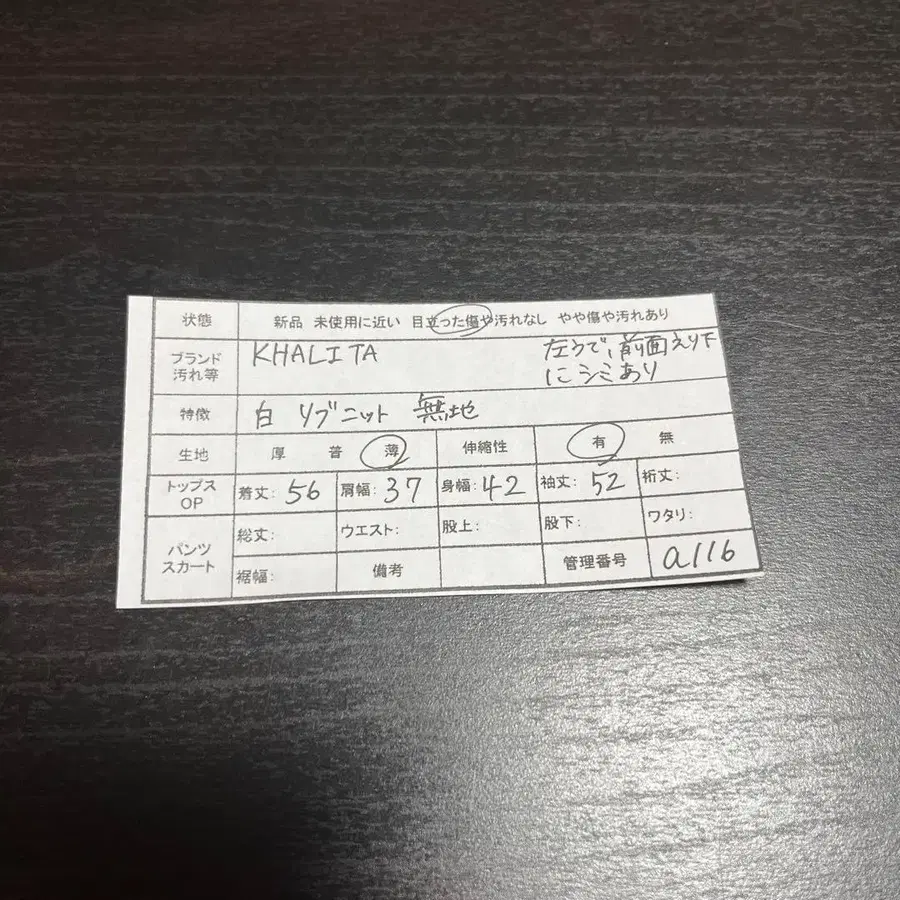 状態 新品 未使用に近い 目立った傷や汚れなし やや傷や汚れあり
ブランド 汚れ等 KHALITA 左うで、前面えり下
にシミあり
特徴 白 リブニット 無地
生地 厚 普 薄 伸縮性 有 無
トップス OP 着丈: 56 肩幅: 37 身幅: 42 袖丈: 52 裄丈:
パンツ スカート 総丈: ウエスト: 股上: 股下: ワタリ:
裾幅: 備考 管理番号 a116